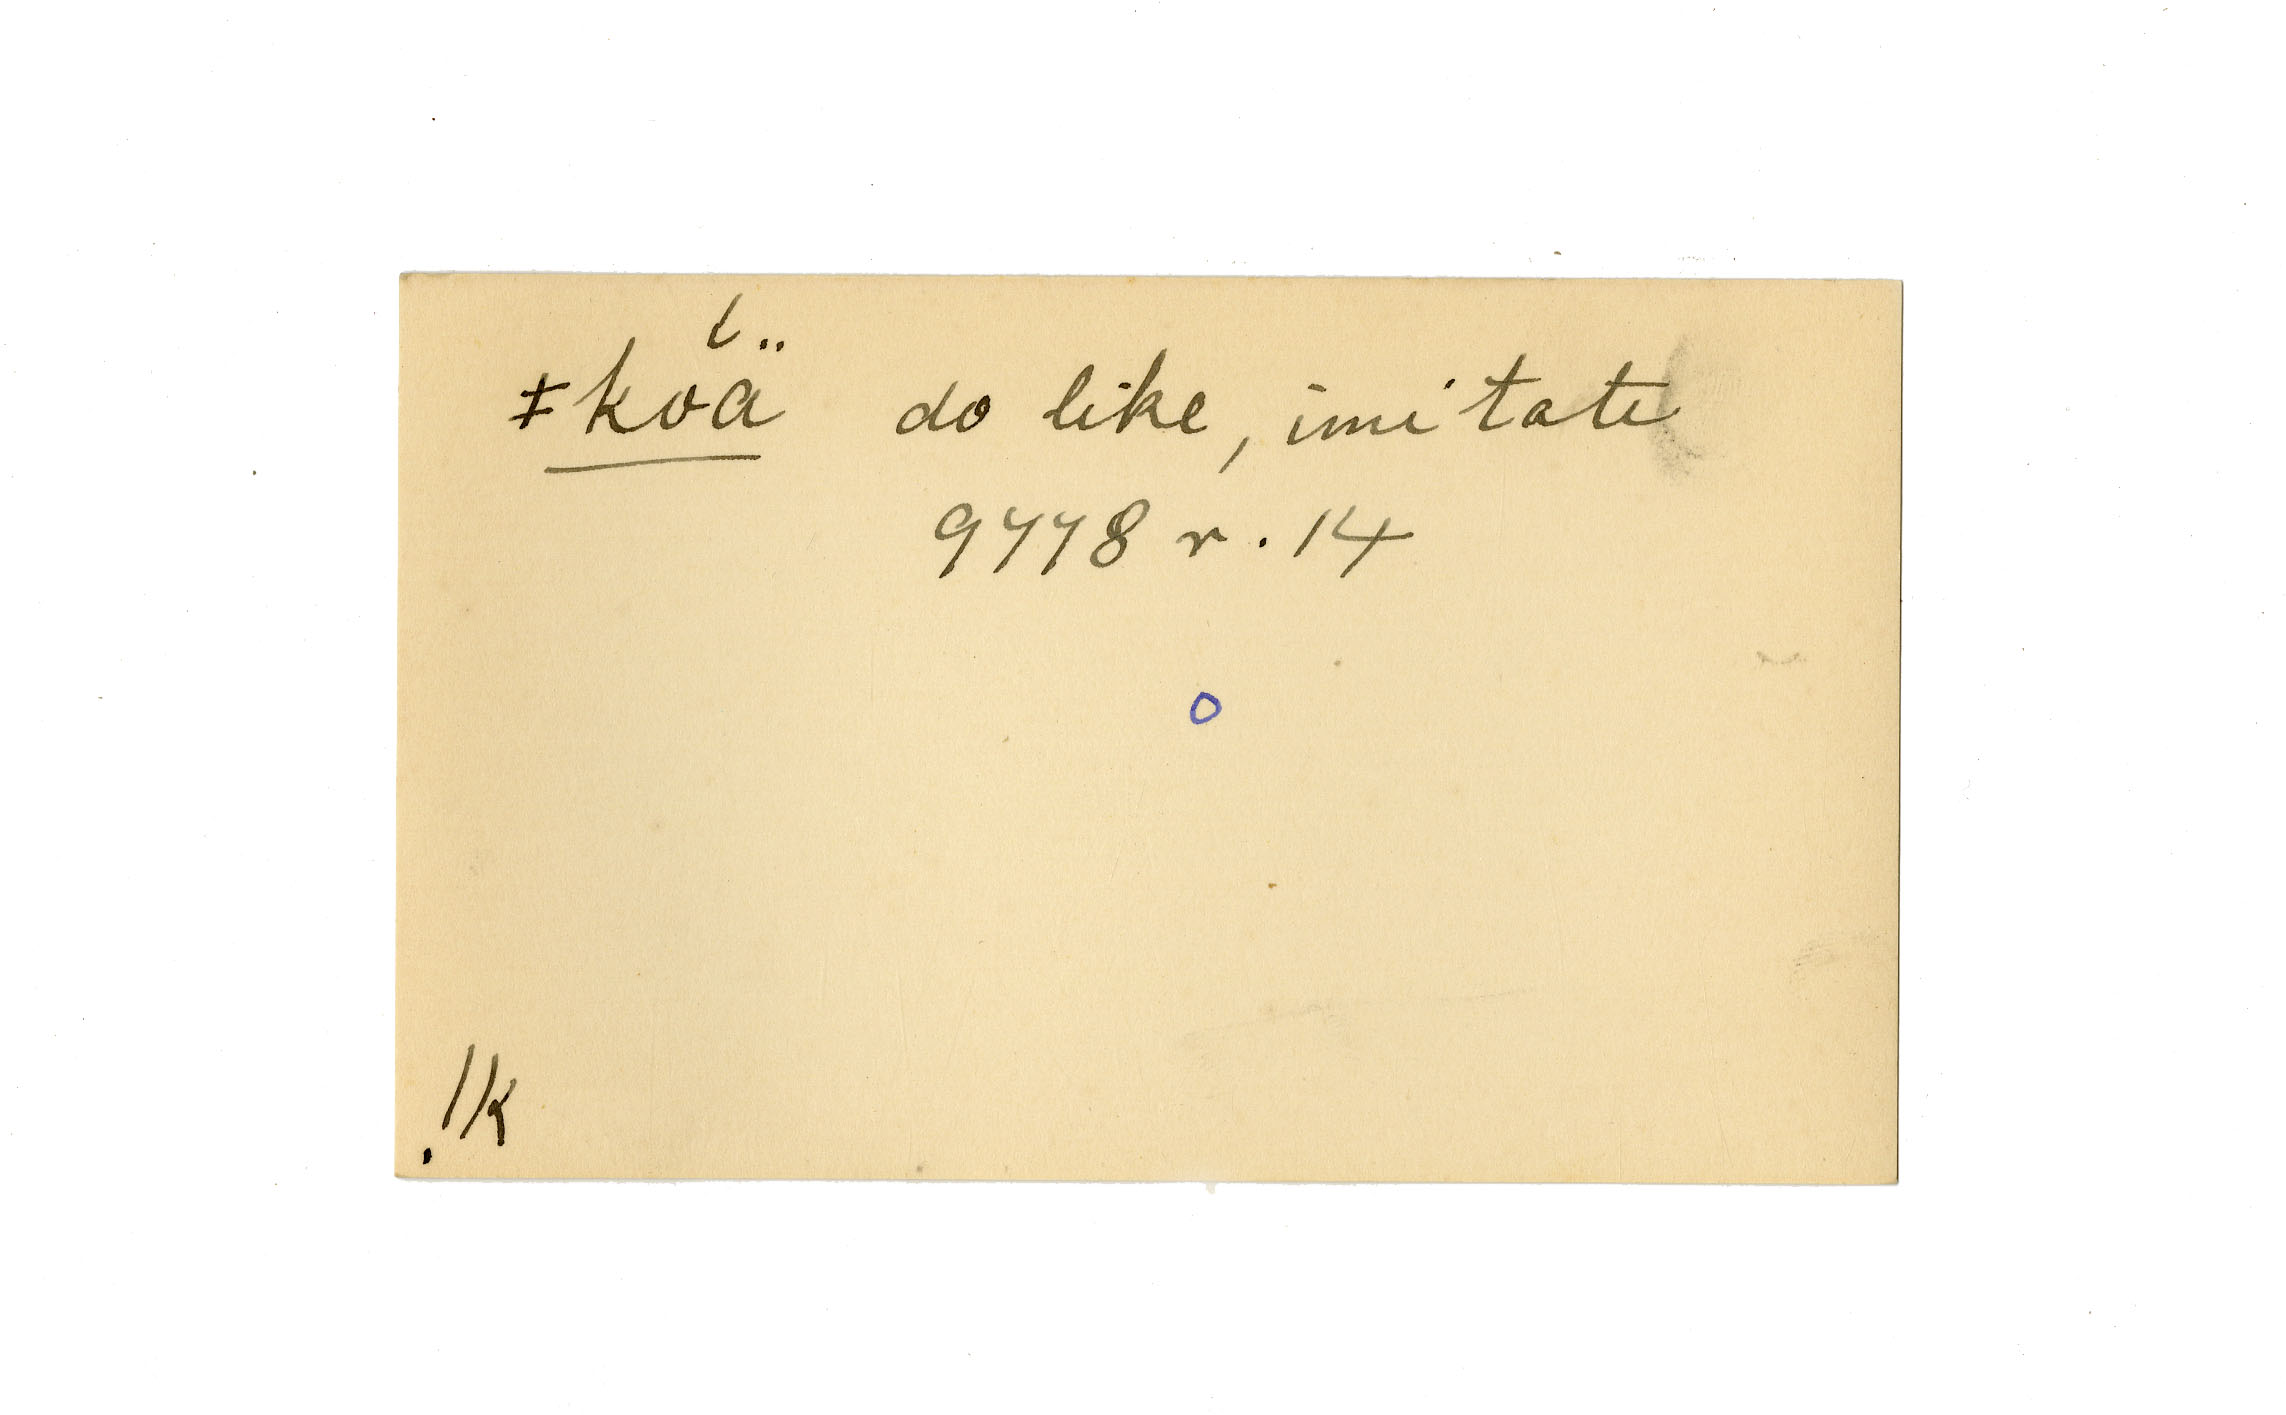 ǂkoä do like, imitate
9778 r. 14
o
!k